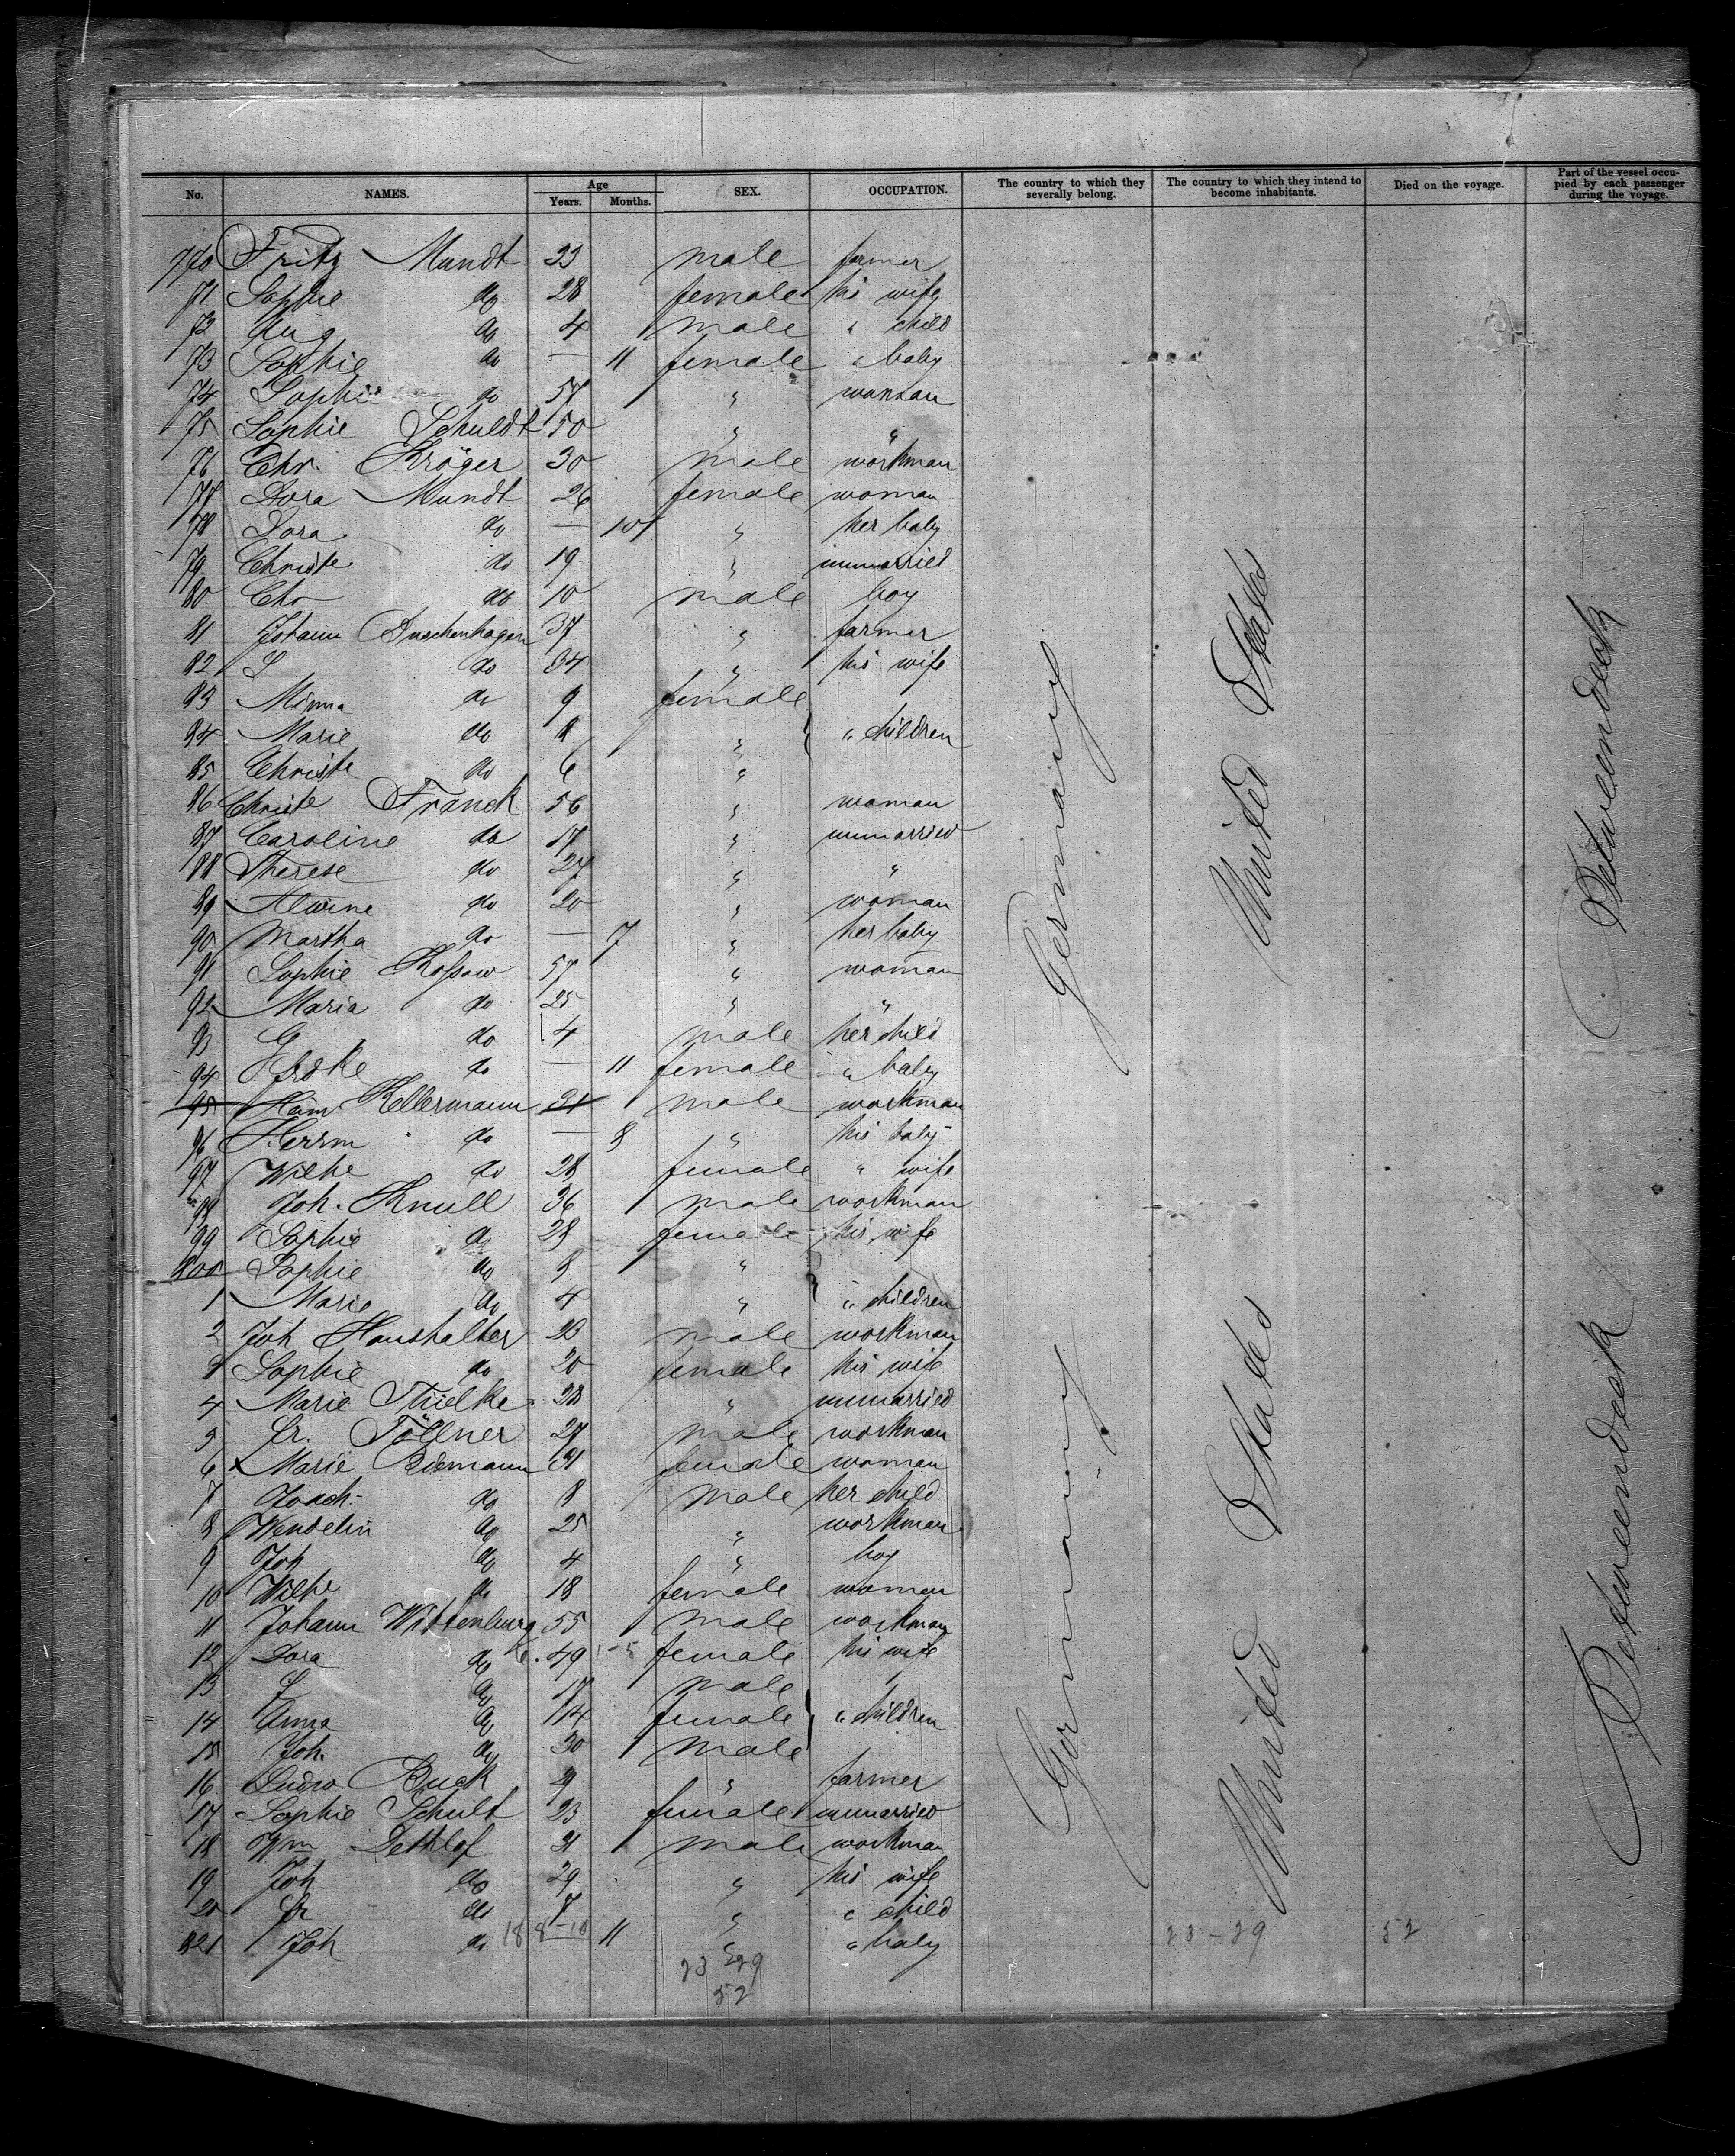 No. NAMES. Age Years. Months. SEX. OCCUPATION. The country to which they severally belong. The country to which they intend to become inhabitants. Died on the voyage. Part of the vessel occupied by each passenger during the voyage.
770 Fritz Mundt 33 male farmer
71 Sophie do 28 female his wife
72 Aug do 4 male " child
73 Sophie do — 11 female " baby
74 Sophie do 57 " woman
75 Sophie Schuldt 50 " "
76 Chr. Kröger 30 male workman
77 Dora Mundt 26 female woman
78 Dora do — 10 " her baby
79 Christe do 19 " unmarried
80 Chr do 10 male boy
81 Johann Buschenhagen 37 " farmer
82 S do 34 " his wife
83 Minna do 9 female
84 Marie do 8 " " children
85 Christe do 6 "
86 Christe Franck 56 " woman
87 Caroline do 17 " unmarried
88 Therese do 27 " "
89 Alwine do 20 " woman
90 Martha do — 7 " her baby
91 Sophie Kossow 57 " woman
92 Maria do 25 " "
93 G do 4 male her child
94 do — 11 female " baby
95 Kellermann 31 male workman
96 Herrm do — 8 " his baby
97 Wilhe do 28 female " wife
98 Joh. Knull 36 male workman
99 Sophie do 28 female his wife
800 Sophie do 8 "
1 Marie do 4 " " children
2 Joh Haushalter 23 male workman
3 Sophie do 20 female his wife
4 Marie Thielke 28 " unmarried
5 Fr. Töllner 27 male workman
6 x Marie 31 female woman
7 Joach. do 8 male her child
8 Wendelin do 25 " workman
9 Joh do 4 " boy
10 Wilhe do 18 female woman
11 Johann Wittenburg 55 male workman
12 Dora do 49 female his wife
13 do 17 male
14 Anna do 14 female " children
15 Joh. do 30 male
16 Ludw Buck 29 " farmer
17 Sophie Schult 23 female unmarried
18 Wm Dethlof 31 male workman
19 Joh do 29 " his wife
20 Fr do 7 " " child
821 Joh do — 11 " " baby
Germany United States Betweendeck
Germany United States Betweendeck
23 29
52
23-29 52